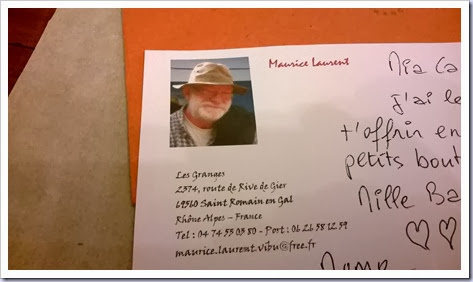 Maurice Laurent
Mia Ca
j'ai le
t'offrir en
petits bout
Mille Ba
Les Granges
2374, route de Rive de Gier
69560 Saint Romain en Gal
Rhône Alpes – France
Tel : 04 74 53 03 80 - Port : 06 26 58 12 59
maurice.laurent.vibu@free.fr